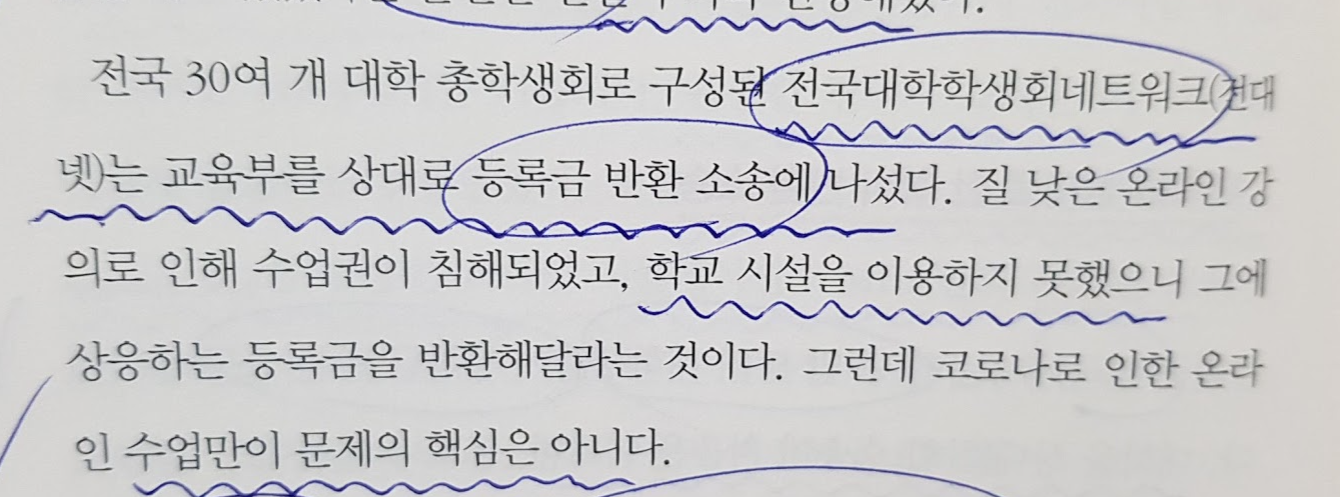 전국 30여 개 대학 총학생회로 구성된 전국대학학생회네트워크(전대
넷)는 교육부를 상대로 등록금 반환 소송에 나섰다. 질 낮은 온라인 강
의로 인해 수업권이 침해되었고, 학교 시설을 이용하지 못했으니 그에
상응하는 등록금을 반환해달라는 것이다. 그런데 코로나로 인한 온라
인 수업만이 문제의 핵심은 아니다.